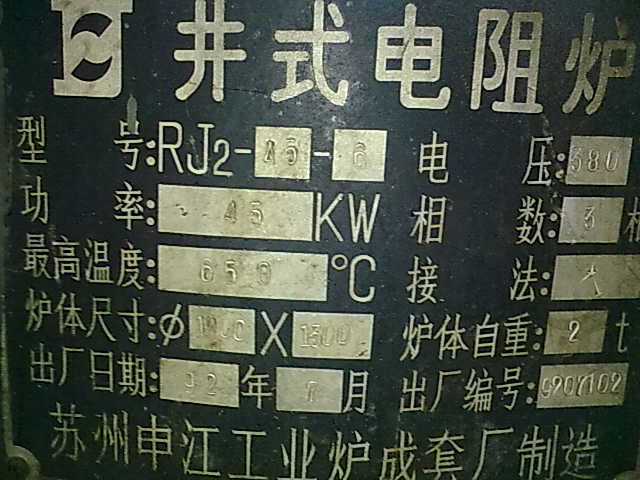 井式电阻炉
型号:RJ2-45-6 电压:380
功率:45KW 相数:3相
最高温度:650℃ 接法:
炉体尺寸:φ X1300 炉体自重:2t
出厂日期:92年7月 出厂编号:
苏州申江工业炉成套厂制造